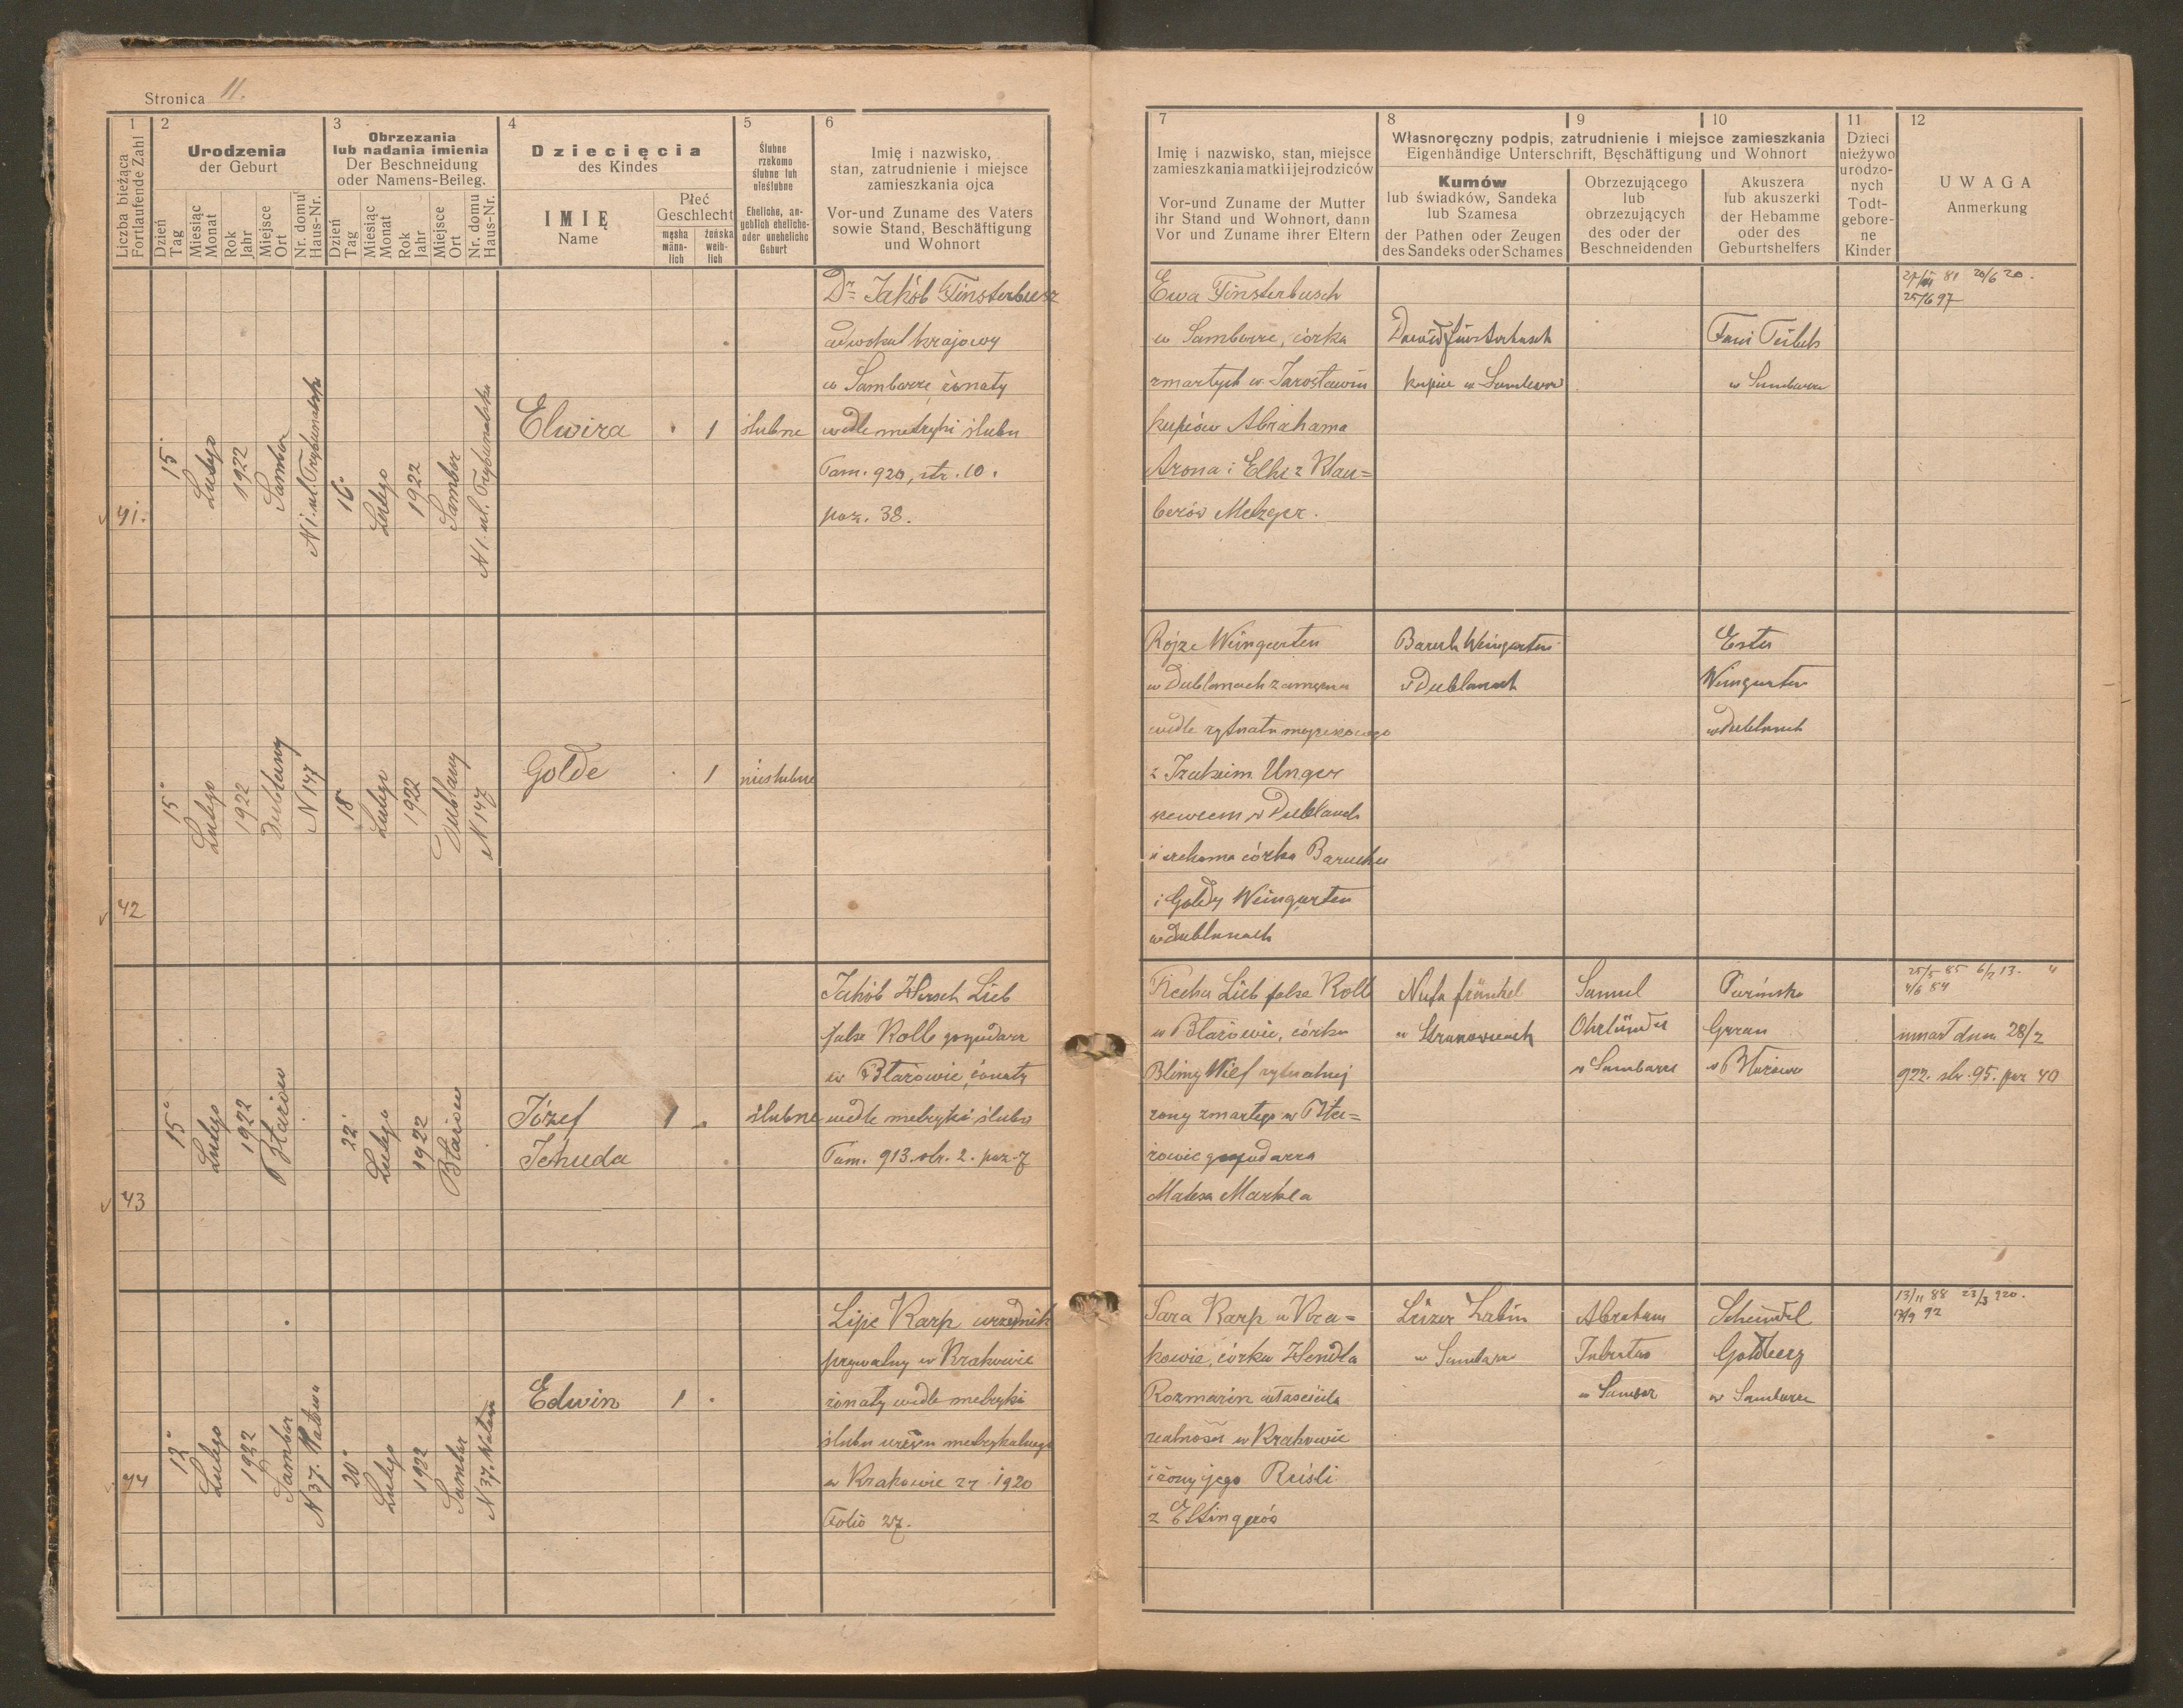 Stronica 11.
1
Liczba bieżąca
Fortlaufende Zahl
2
Urodzenia
der Geburt
Dzień
Tag
Miesiąc
Monat
Rok
Jahr
Miejsce
Ort
Nr. domu
Haus-Nr.
3
Obrzezania
lub nadania imienia
Der Beschneidung
oder Namens-Beileg.
Dzień
Tag
Miesiąc
Monat
Rok
Jahr
Miejsce
Ort
Nr. domu
Haus-Nr.
4
Dziecięcia
des Kindes
IMIĘ
Name
Płeć
Geschlecht
męska
männ-
lich
żeńska
weib-
lich
5
Ślubne
rzekomo
ślubne lub
nieślubne
Eheliche, an-
geblich eheliche-
oder uneheliche
Geburt
6
Imię i nazwisko,
stan, zatrudnienie i miejsce
zamieszkania ojca
Vor-und Zuname des Vaters
sowie Stand, Beschäftigung
und Wohnort
7
Imię i nazwisko, stan, miejsce
zamieszkania matki i jej rodziców
Vor-und Zuname der Mutter
ihr Stand und Wohnort, dann
Vor und Zuname ihrer Eltern
8
9
10
Własnoręczny podpis, zatrudnienie i miejsce zamieszkania
Eigenhändige Unterschrift, Beschäftigung und Wohnort
Kumów
lub świadków, Sandeka
lub Szamesa
der Pathen oder Zeugen
des Sandeks oder Schames
Obrzezującego
lub
obrzezujących
des oder der
Beschneidenden
Akuszera
lub akuszerki
der Hebamme
oder des
Geburtshelfers
11
Dzieci
nieżywo
urodzo-
nych
Todt-
gebore-
ne
Kinder
12
UWAGA
Anmerkung
41.
15
Lutego
1922
Sambor
N 1. ul. Trybunalska
16
Lutego
1922
Sambor
N 1. ul. Trybunalska
Elwira
1
ślubne
Dr Jakób Finsterbusz
adwokat krajowy
w Samborze, żonaty
wedle metryki ślubu
Tom. 920, str. 10.
poz. 38.
Ewa Finsterbusch
w Samborze, córka
zmarłych w Jarosławiu
kupców Abrahama
Arona i Elki z Klau=
berów Metzger.
Dawid Finsterbusch
kupiec w Samborze
Fani
w Samborze
81 20/6 20.
25/6 97
42
15
Lutego
1922
Dublany
N 147
18
Lutego
1922
Dublany
N 147
Golde
1
nieślubne
Rojze Weingarten
w Dublanach zamężna
wedle rytuału mojżeszowego
z Unger
szewcem w Dublanach
i rzekoma córka Barucha
i Goldy Weingarten
w Dublanach
Baruch Weingarten
w Dublanach
Ester
Weingarten
w Dublanach
43
15
Lutego
1922
Błażów
22
Lutego
1922
Błażów
Józef
Jehuda
1
ślubne
Jakób Hersch Lieb
false Kolb gospodarz
w Błażowie, żonaty
wedle metryki ślubu
Tom. 913. str. 2. poz. 7
Recha Lieb false Kolb
w Błażowie, córka
Blimy Wilf rytualnej
żony zmarłego w Bła=
żowie gospodarza
Markla
w
Samuel
Ohrländer
w Samborze
w Błażowie
25/5 85 6/2 13.
4/6 84
umarł dnia 28/2
922. str. 95. poz 40
44
Lutego
1922
Sambor
N 37.
20
Lutego
1922
Sambor
N 37.
Edwin
1
Lipe Karp urzędnik
prywatny w Krakowie
żonaty wedle metryki
ślubu urzędu metrykalnego
w Krakowie 27 1920
Folio 27.
Sara Karp w Kra=
kowie, córka Hendla
Rozmarin właściciela
realności w Krakowie
i żony jego Reisli
z Ettingerów
Leizer
w Samborze
Abraham
w Sambor
Scheindel
Goldberg
w Samborze
13/11 88 23/3 920.
92